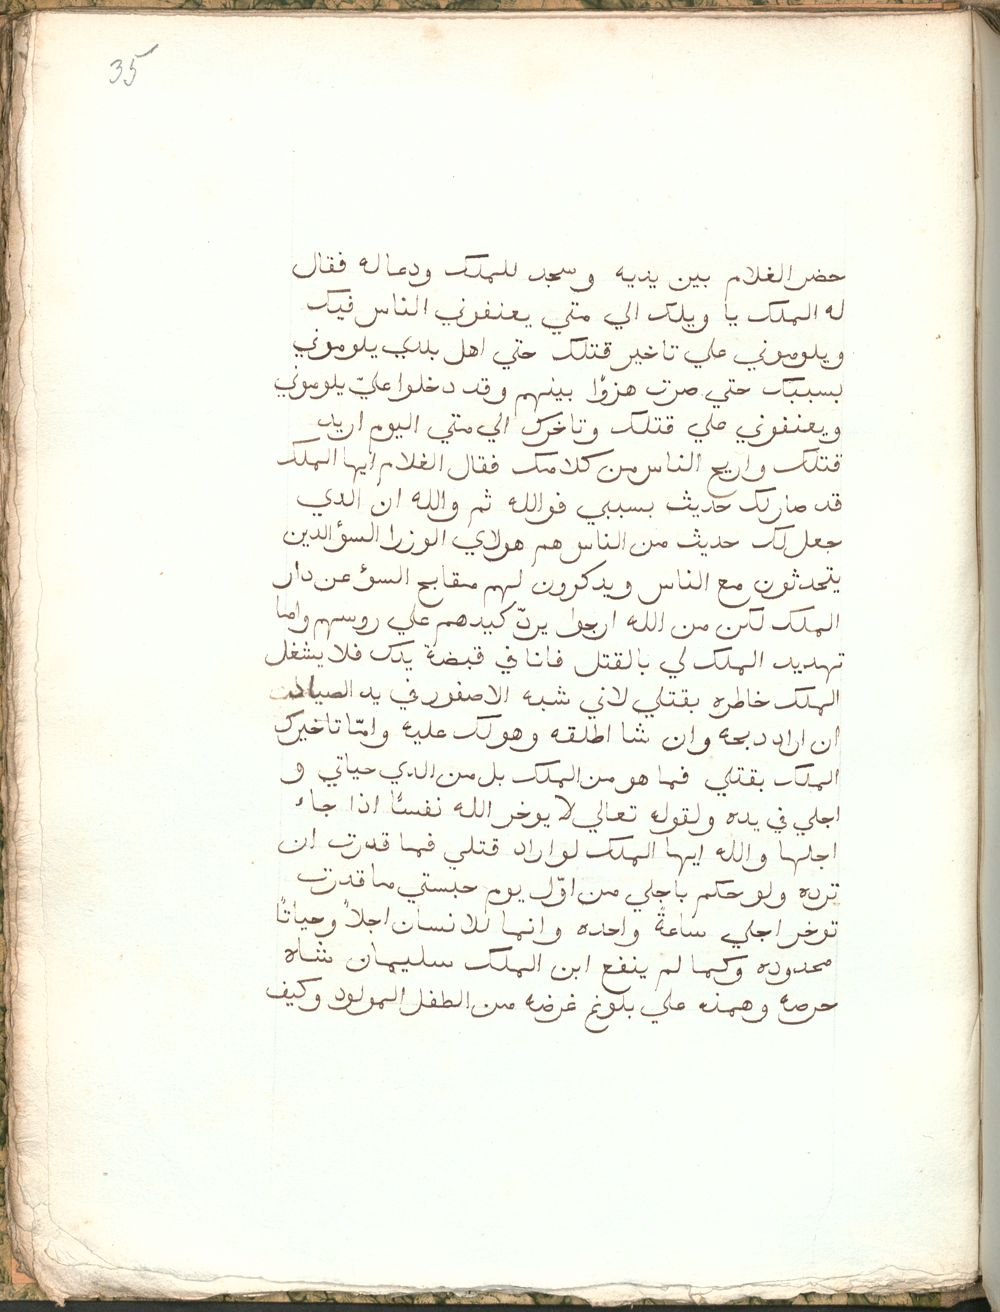 35
حضر الغلام بين يديه وسجد للملك ودعا له فقال
له الملك يا ويلك الي متي يعنفوني الناس فيك
ويلوموني علي تاخير قتلك حتي اهل بلدي يلوموني
بسببك حتي صرت هزوًا بينهم وقد دخلوا عليّ يلوموني
ويعنفوني علي قتلك وتاخرك الي متي اليوم اريد
قتلك واريح الناس من كلامك فقال الغلام ايها الملك
قد صار لك حديث بسببي فوالله ثم والله ان الدي
جعل لك حديث من الناس هم هولاي الوزرا السؤ الدين
يتحدثون مع الناس ويدكرون لهم مقابح السؤ عن دار
الملك لكن من الله ارجوا يردّ كيدهم علي روسهم واما
تهديد الملك لي بالقتل فانا في قبضة يدك فلا يشغل
الملك خاطره بقتلي لاني شبه الاصفور في يد الصياد
ان اراد دبحه وان شا اطلقه وهو لك عليه وامّا تاخيرك
الملك بقتلي فما هو من الملك بل من الدي حياتي و
اجلي في يده ولقوله تعالي لا يوخر الله نفسًا اذا جاء
اجلها والله ايها الملك لو اراد قتلي فما قدرت ان
ترده ولو حكم باجلي من اوّل يوم حبستي ما قدرت
توخر اجلي ساعةً واحده وانما للانسان اجلاً وحياتًا
محدوده وكما لم ينفع ابن الملك سليمان شاه
حرصه وهمته علي بلوغ غرضه من الطفل المولود وكيف